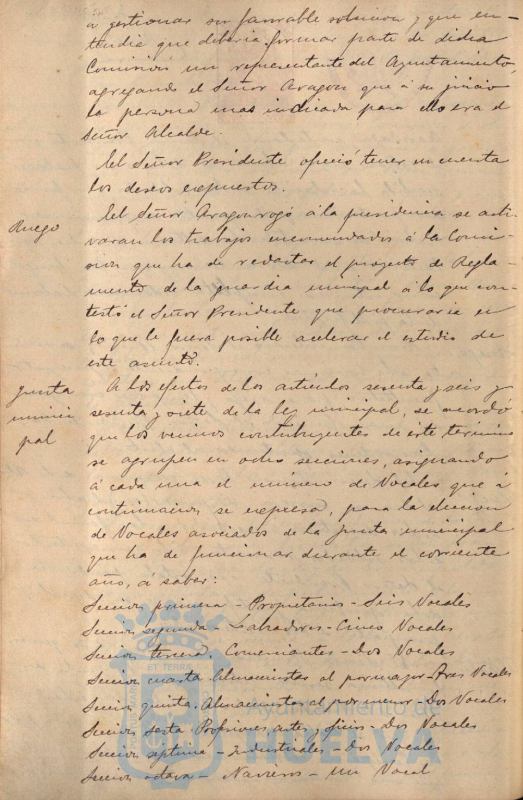 a gestionar su favorable solucion y que en-
tendia que deberia formar parte de dicha
Comision un representante del Ayuntamiento,
agregando el Señor Aragon que á su juicio
la persona mas indicada para ello era el
Señor Alcalde.
El Señor Presidente ofreció tener en cuenta
los deseos expuestos.
Ruego
El Señor Aragon rogó á la presidencia se acti-
varan los trabajos encomendados á la Comi-
sion que ha de redactar el proyecto de Regla-
mento de la guardia municipal á lo que con-
testó el Señor Presidente que procuraria en
lo que le fuera posible acelerar el estudio de
este asunto.
Junta
munici
pal
A los efectos de los artículos sesenta y seis y
sesenta y siete de la ley municipal, se acordó
que los vecinos contribuyentes de este término
se agrupen en ocho secciones, asignando
á cada una el número de Vocales que á
continuacion se expresa, para la eleccion
de Vocales asociados de la junta municipal
que ha de funcionar durante el corriente
año, á saber:
Seccion primera - Propietarios - Seis Vocales
Seccion segunda - Labradores - Cinco Vocales
Seccion tercera - Comerciantes - Dos Vocales
Seccion cuarta Almacenistas al por mayor - Tres Vocales
Seccion quinta. Almacenistas al por menor - Dos Vocales
Seccion sexta Profesiones, artes y oficios - Dos Vocales
Seccion septima - Industriales - Dos Vocales
Seccion octava - Navieros - Un Vocal
Ayuntamiento de
HUELVA